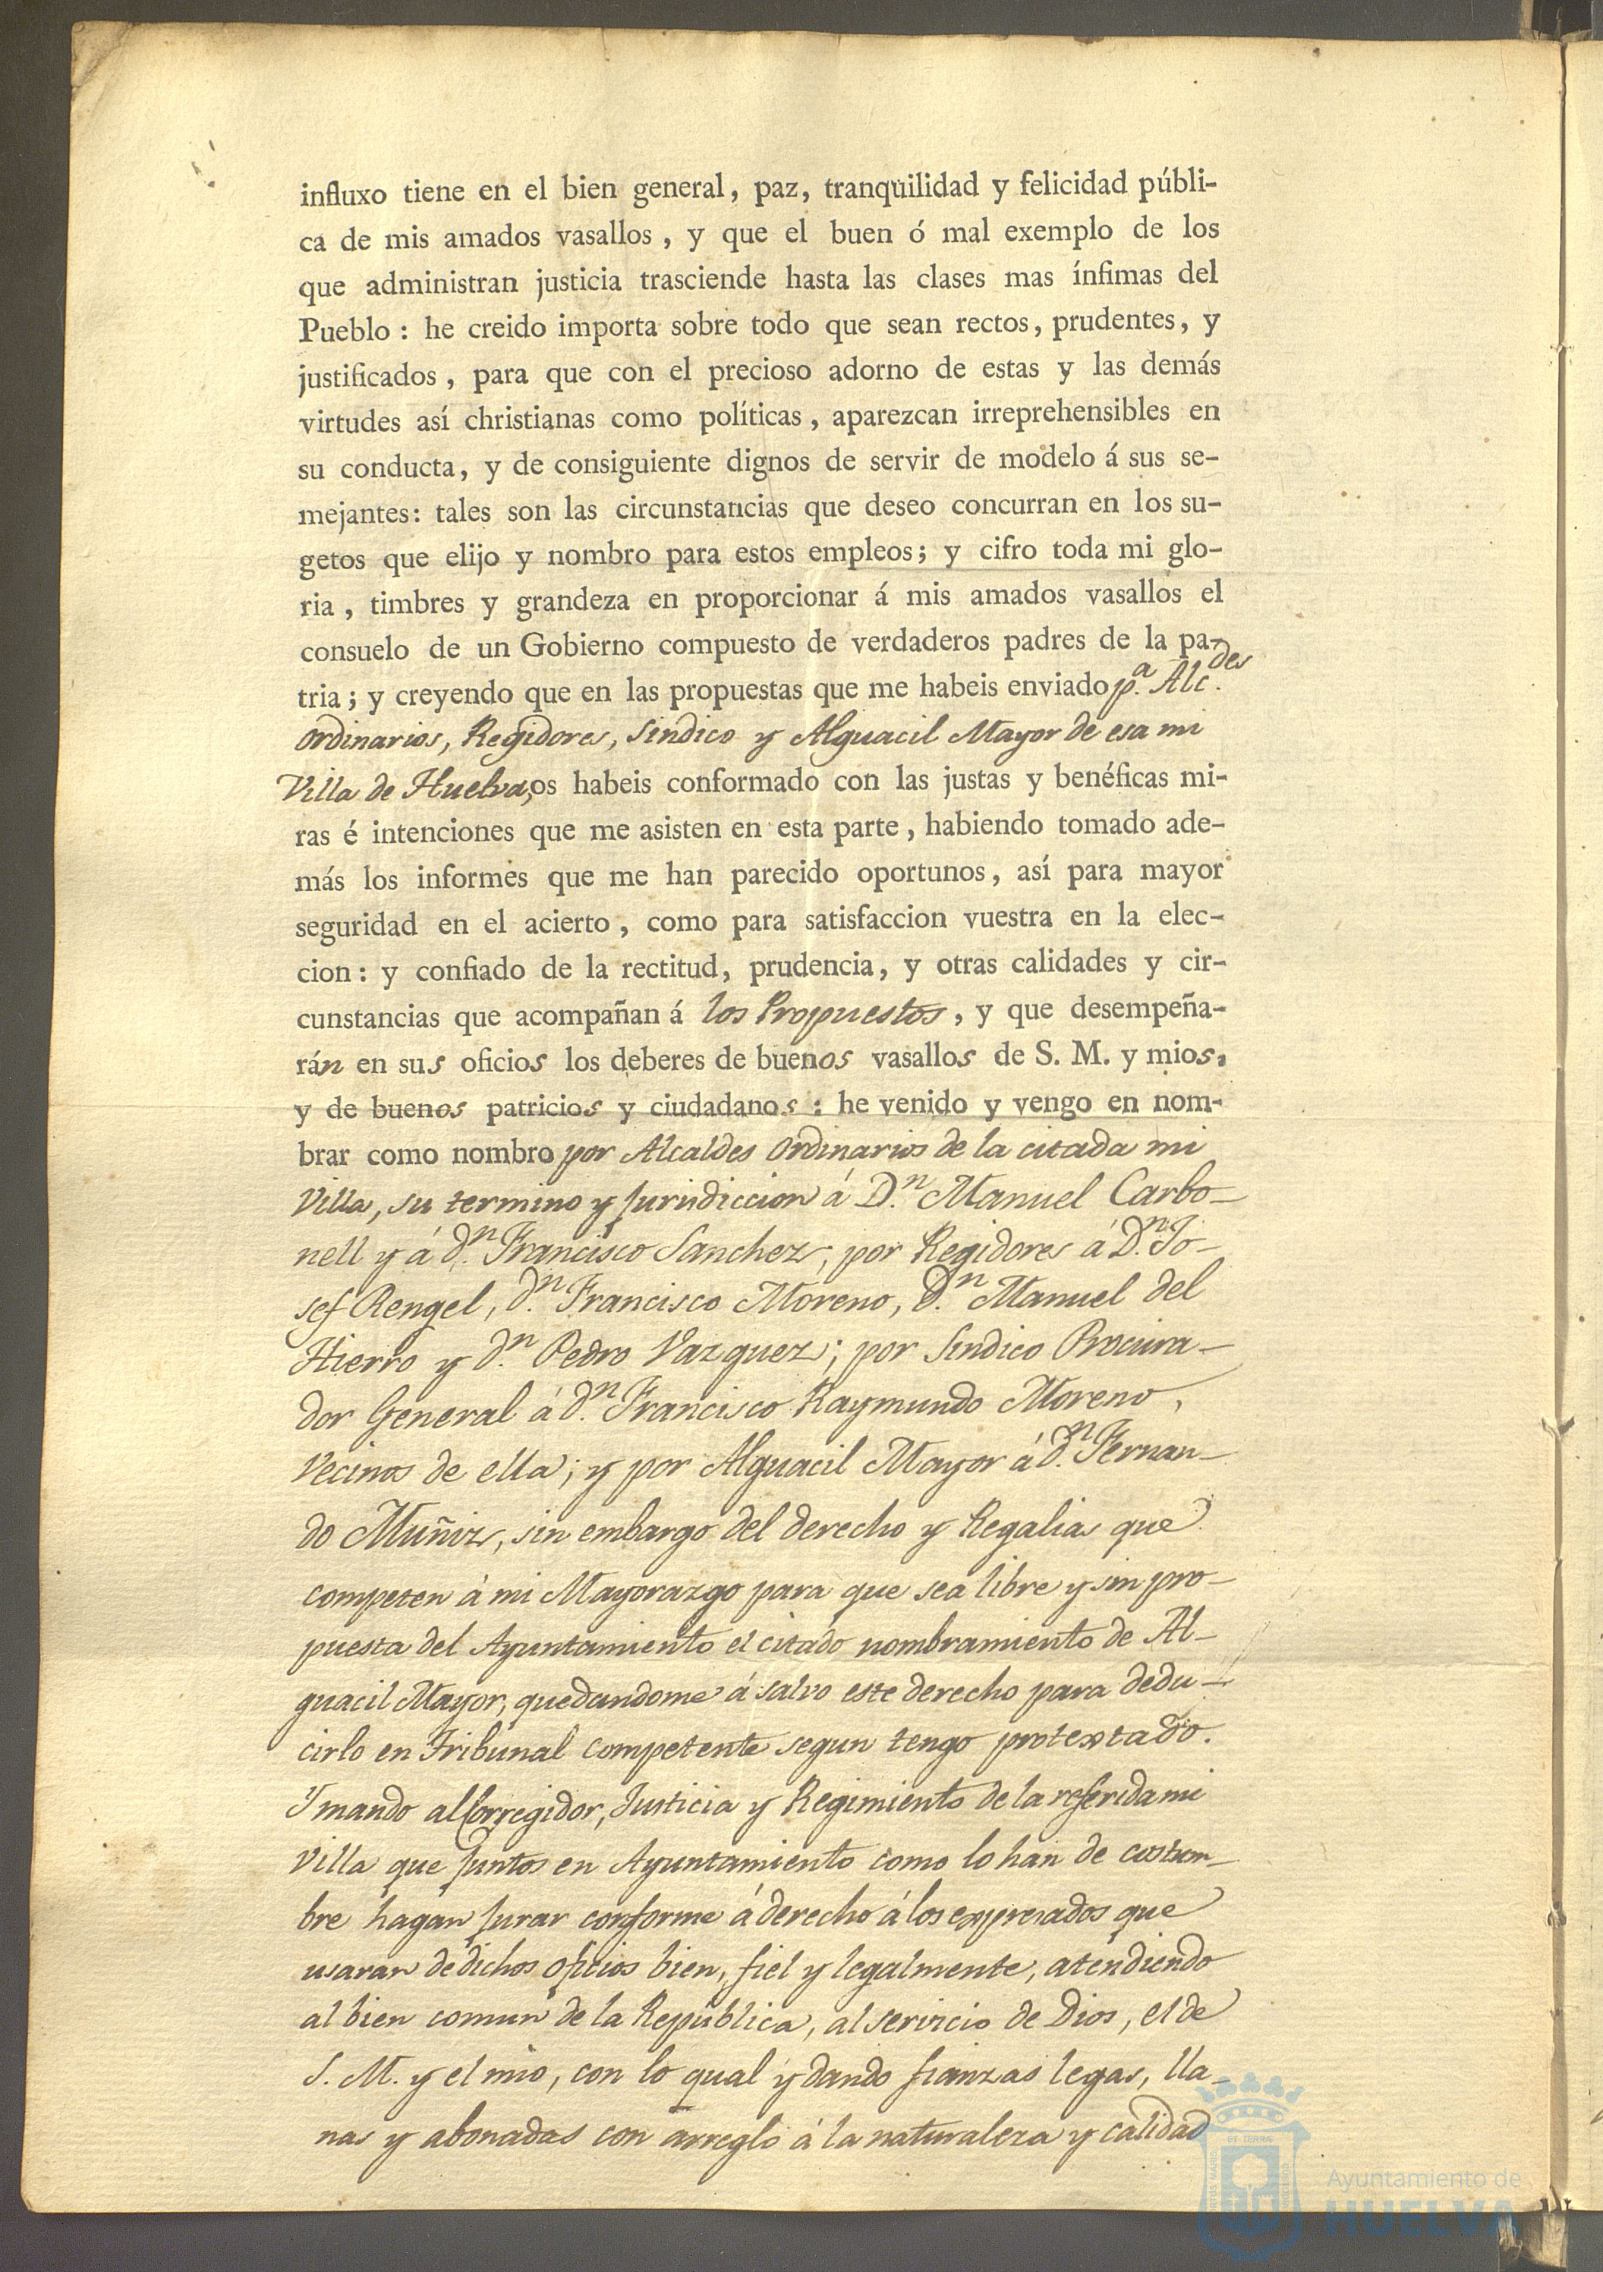 influxo tiene en el bien general, paz, tranquilidad y felicidad públi-
ca de mis amados vasallos, y que el buen ó mal exemplo de los
que administran justicia trasciende hasta las clases mas ínfimas del
Pueblo: he creido importa sobre todo que sean rectos, prudentes, y
justificados, para que con el precioso adorno de estas y las demás
virtudes así christianas como políticas, aparezcan irreprehensibles en
su conducta, y de consiguiente dignos de servir de modelo á sus se-
mejantes: tales son las circunstancias que deseo concurran en los su-
getos que elijo y nombro para estos empleos; y cifro toda mi glo-
ria, timbres y grandeza en proporcionar á mis amados vasallos el
consuelo de un Gobierno compuesto de verdaderos padres de la pa-
tria; y creyendo que en las propuestas que me habeis enviado p.ª Alc.des
ordinarios, Regidores, Sindico y Alguacil Mayor de esa mi
Villa de Huelva, os habeis conformado con las justas y benéficas mi-
ras é intenciones que me asisten en esta parte, habiendo tomado ade-
más los informes que me han parecido oportunos, así para mayor
seguridad en el acierto, como para satisfaccion vuestra en la elec-
cion: y confiado de la rectitud, prudencia, y otras calidades y cir-
cunstancias que acompañan á los Propuestos, y que desempeña-
rán en sus oficios los deberes de buenos vasallos de S. M. y mios,
y de buenos patricios y ciudadanos: he venido y vengo en nom-
brar como nombro por Alcaldes ordinarios de la citada mi
Villa, su termino y Jurisdiccion á D.n Manuel Carbo-
nell y á d.n Francisco Sanchez; por Regidores á D.n Jo-
sef Rengel, d.n Francisco Moreno, D.n Manuel del
Hierro y d.n Pedro Vazquez; por Sindico Procura-
dor General á d.n Francisco Raymundo Moreno,
Vecinos de ella; y por Alguacil Mayor á d.n Fernan-
do Muñiz, sin embargo del derecho y Regalias que
competen á mi Mayorazgo para que sea libre y sin pro-
puesta del Ayuntamiento el citado nombramiento de Al-
guacil Mayor, quedandome á salvo este derecho para dedu-
cirlo en Tribunal competente segun tengo protextado.
Y mando al Corregidor, Justicia y Regimiento de la referida mi
Villa que Juntos en Ayuntamiento como lo han de costum-
bre hagan Jurar conforme á derecho á los expresados que
usaran de dichos oficios bien, fiel y legalmente, atendiendo
al bien comun de la República, al servicio de Dios, el de
S. M. y el mio, con lo qual y dando fianzas legas, lla-
nas y abonadas con arreglo á la naturaleza y calidad
Ayuntamiento de
HUELVA